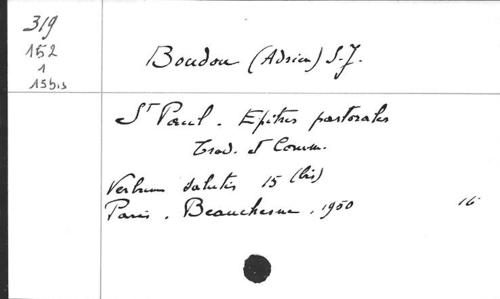 319
152
1
15bis
Boudou (Adrien) S.J.
St Paul. Epitres pastorales
Trad. et Comm.
Verbum salutis 15 (bis)
Paris. Beauchesne. 1950 16